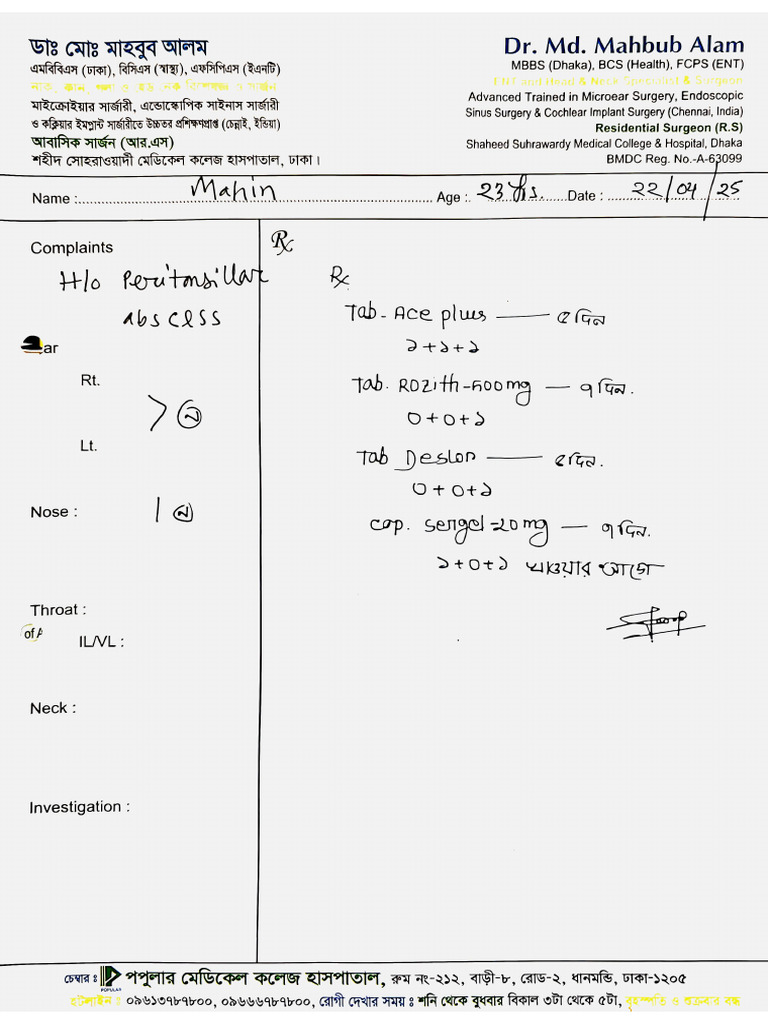 ডাঃ মোঃ মাহবুব আলম
এমবিবিএস (ঢাকা), বিসিএস (স্বাস্থ্য), এফসিপিএস (ইএনটি)
মাইক্রোইয়ার সার্জারী, এন্ডোস্কোপিক সাইনাস সার্জারী
ও কক্লিয়ার ইমপ্লান্ট সার্জারীতে উচ্চতর প্রশিক্ষণপ্রাপ্ত (চেন্নাই, ইন্ডিয়া)
আবাসিক সার্জন (আর.এস)
শহীদ সোহরাওয়ার্দী মেডিকেল কলেজ হাসপাতাল, ঢাকা।
Dr. Md. Mahbub Alam
MBBS (Dhaka), BCS (Health), FCPS (ENT)
ENT and Head & Neck Specialist & Surgeon
Advanced Trained in Microear Surgery, Endoscopic
Sinus Surgery & Cochlear Implant Surgery (Chennai, India)
Residential Surgeon (R.S)
Shaheed Suhrawardy Medical College & Hospital, Dhaka
BMDC Reg. No.-A-63099
Name : Mahin Age : 23 Yrs. Date : 22/04/25
Complaints
H/o Peritonsillar
abscess
ar
Rt.
Lt.
Nose :
Throat :
of A
IL/VL :
Neck :
Investigation :
Rx
Rx
Tab- Ace plus — ৫ দিন
১+১+১
Tab. Rozith-500mg — ৭ দিন.
০+০+১
Tab Deslor — ৫ দিন.
০+০+১
Cap. Sergel-20mg — ৭ দিন.
১+০+১ খাওয়ার আগে
চেম্বার ঃ POPULAR পপুলার মেডিকেল কলেজ হাসপাতাল, রুম নং-২১২, বাড়ী-৮, রোড-২, ধানমন্ডি, ঢাকা-১২০৫
হটলাইন ঃ ০৯৬১৩৭৮৭৮০০, ০৯৬৬৬৭৮৭৮০০, রোগী দেখার সময় ঃ শনি থেকে বুধবার বিকাল ৩টা থেকে ৫টা, বৃহস্পতি ও শুক্রবার বন্ধ